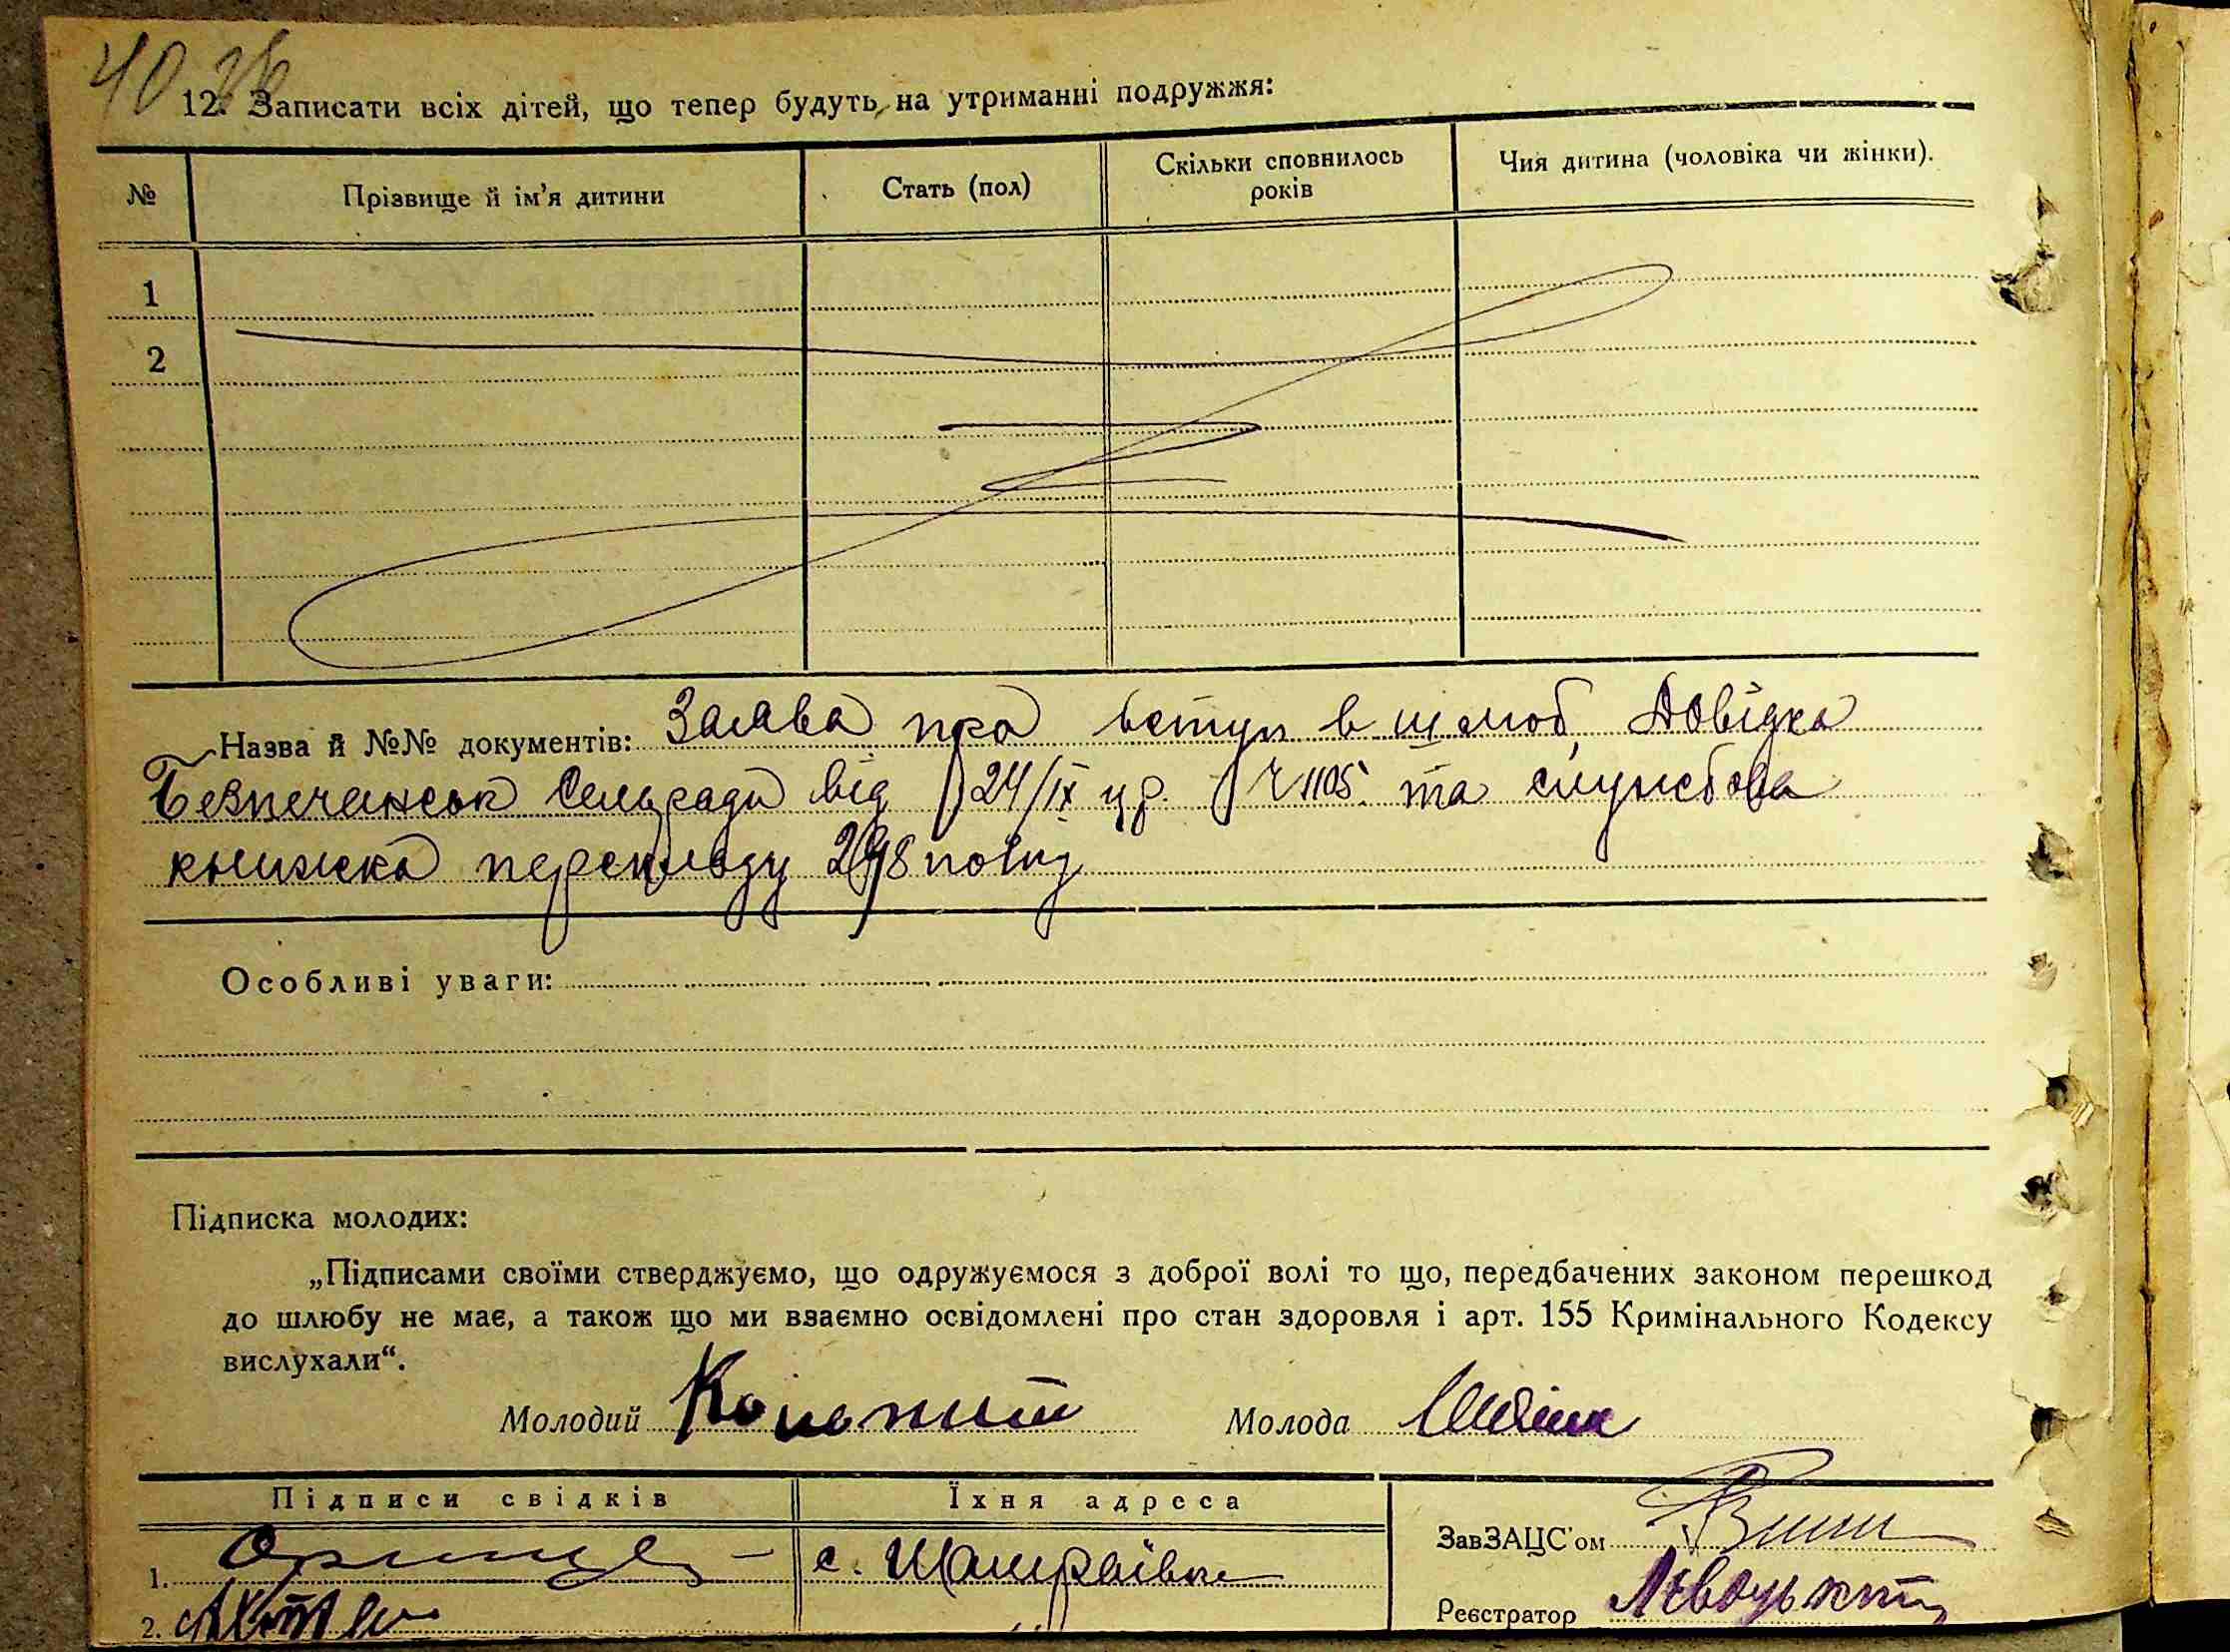 40
12. Записати всіх дітей, що тепер будуть на утриманні подружжя:
№ Прізвище й ім'я дитини Стать (пол) Скільки сповнилось років Чия дитина (чоловіка чи жінки).
1
2
Назва й №№ документів: Заява про вступ в шлюб, Довідка
Безпечанськ Сельради від 24/IX ц.р. 1105 та службова
книжка
Особливі уваги:
Підписка молодих:
„Підписами своїми стверджуємо, що одружуємося з доброї волі то що, передбачених законом перешкод
до шлюбу не має, а також що ми взаємно освідомлені про стан здоровля і арт. 155 Кримінального Кодексу
вислухали“.
Молодий Молода
Підписи свідків Їхня адреса
ЗавЗАЦС'ом
1. с. Шамраївка
Реєстратор
2.